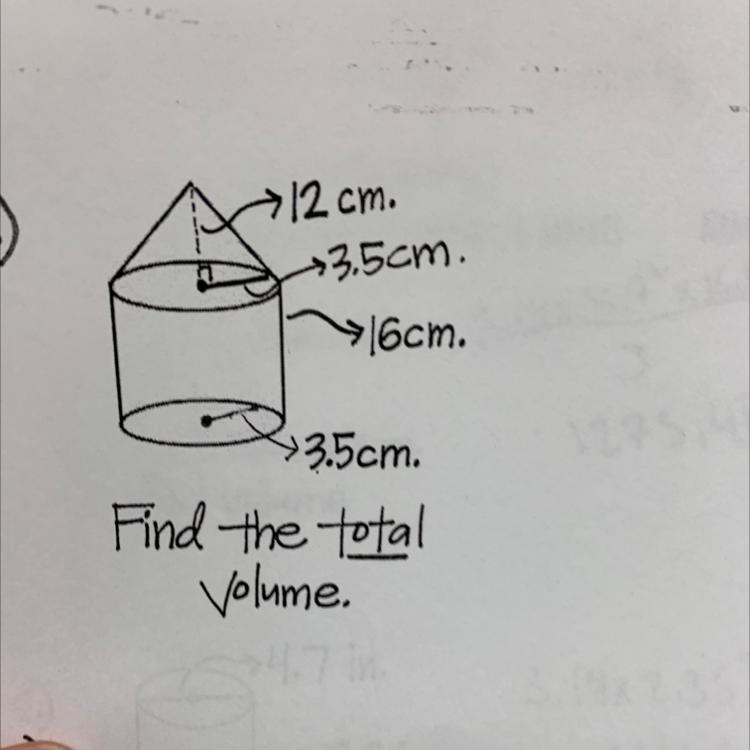 12 cm.
3.5cm.
16cm.
3.5cm.
Find the total
Volume.
4.7 in.